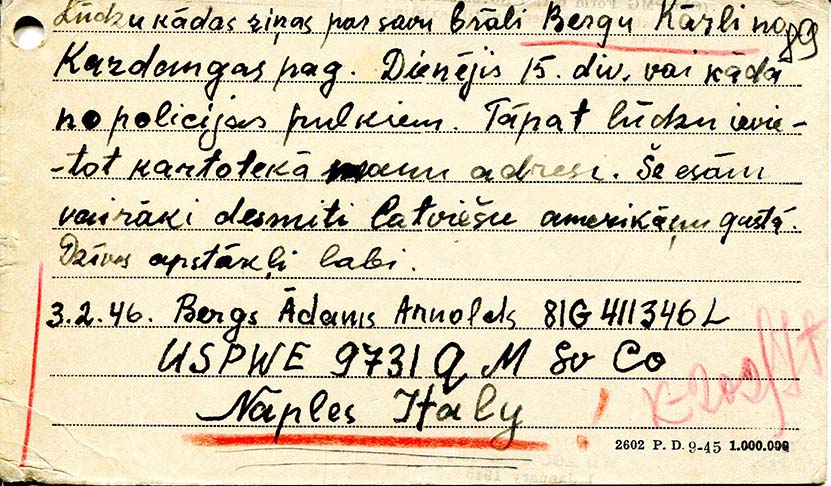 Lūdzu kādas ziņas par savu brāli Bergu Kārli no 89
Kazdangas pag. Dienējis 15. div. vai kādā
no policijas pulkiem. Tāpat lūdzu ievie-
-tot kartotekā manu adresi. Še esām
vairāki desmiti latviešu amerikāņu gūstā.
Dzīves apstākļi labi.
3.2.46. Bergs Ādams Arnolds 81G 411346 L
USPWE 9731 Q M Sv Co
Naples Italy
2602 P. D. 9-45 1.000.000